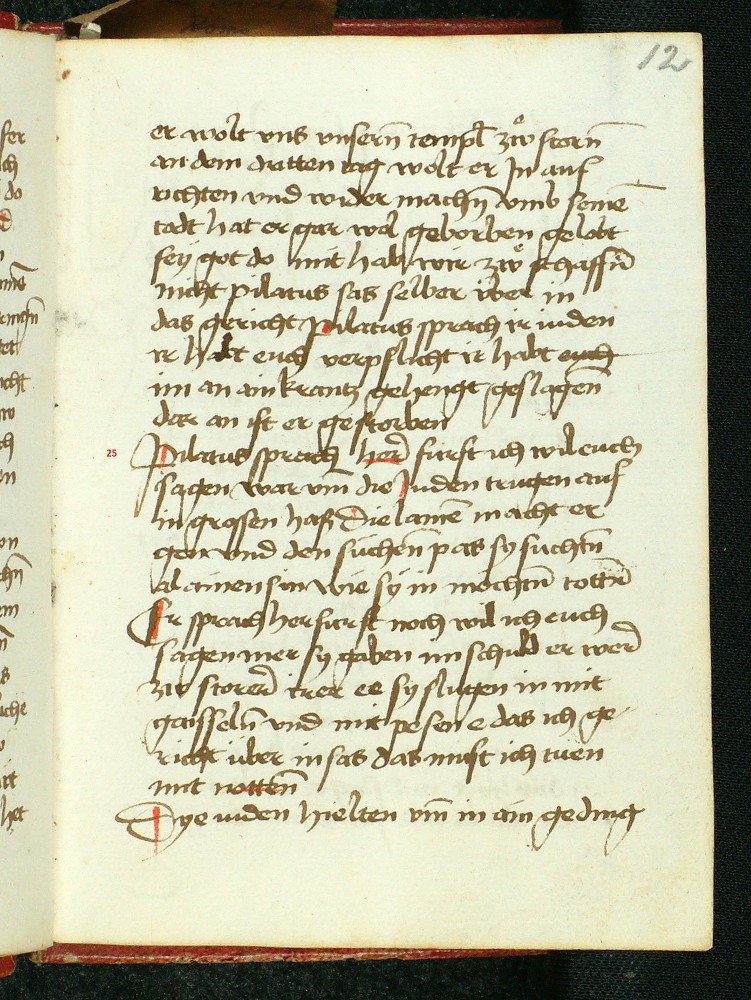 12
er wolt vns vnsern̄ templ̄ zwͦ storn̄
an dem dritten tag wolt er In auf
richten vnd wider machn̄ vmb seinē
tadt hat er gar wol geborben gelobt
sey got do mit hab wir zwͦ schaffn̄
nicht pilatus sas selber über in
das gericht Pilatus sprach ir iuden
ir habt euch verpflicht ir habt euch
im an ain krantz gehengt geslagen̄
dar an ist er gestorben
25
Pilatus sprach her̄ furst ich wil euch
sagen war vm̄ die Iuden trugen auf
in grossen haß Die lamē macht er
gen vnd den suchen̄ pas sy suchtn̄
al ainen sin wie sy in mochtn̄ tottn̄
Er sprach her furst noch wil ich euch
sagen mer sy gaben im schuld er wer̄
zw storer̄ irer ee sy slugen in mit
gaisseln̄ vnd mit pesen e das ich ge
richt über in sas das must ich tuen
mit notten̄
Dye iuden hielten vm̄ in ain geding